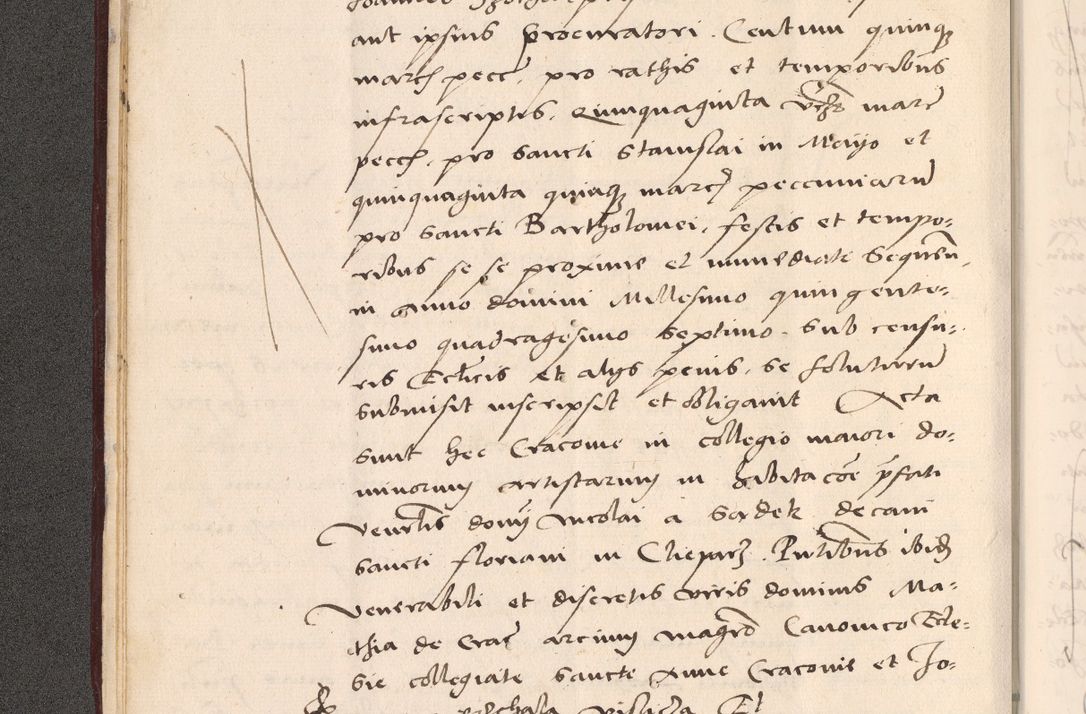 aut ipsius procuratori. Centum quinq3
march pecc. pro rathis et temporibus
infrascriptis, Quinquaginta marc
pecch. pro Sancti Stanislai in Mayo et
quinquaginta quinq3 marc pecuniaru
pro Sancti Bartholomei, festis et tempo:
ribus se se proxime et immediate Sequen.
in anno domini Millesimo quingente:
simo quadragesimo Septimo. Sub censu:
ris Eccl'icis et alys penis. se soluturu
Submisit inscripsit et obligavit Acta
Sunt hec Cracovie in collegio maiori do:
minorum artistarum in habitacoe p'fati
Venerlis domi Nicolai a Sadek decani
Sancti Floriani in Clepar3. Pntibus ibid
Venerabili et discretis viris dominis Ma:
thia de Crac arcium magro Canonico Eccle:
sie collegiate Sancte Anne Cracovie et Jo:
Et